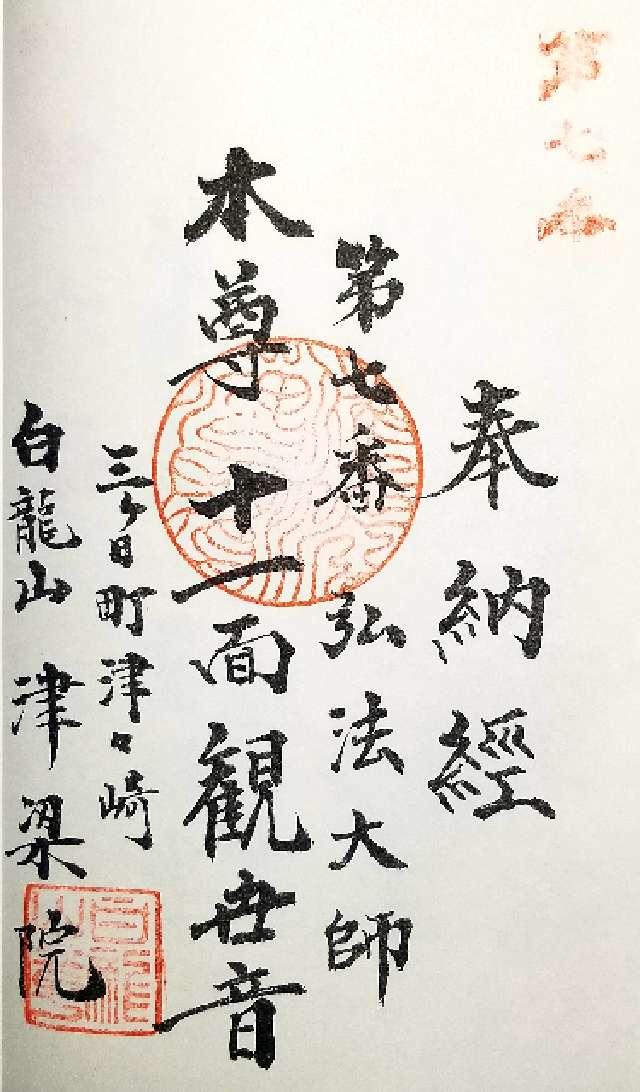 第七番
奉納經
第七番弘法大師
本尊十一面観世音
三ヶ日町津々崎
白龍山津梁院